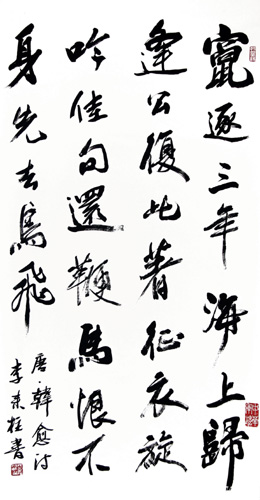 竄逐三年海上歸
逢公復此著征衣旋
吟佳句還鞭馬恨不
身先去鳥飛
唐·韓愈诗
李荣柱書